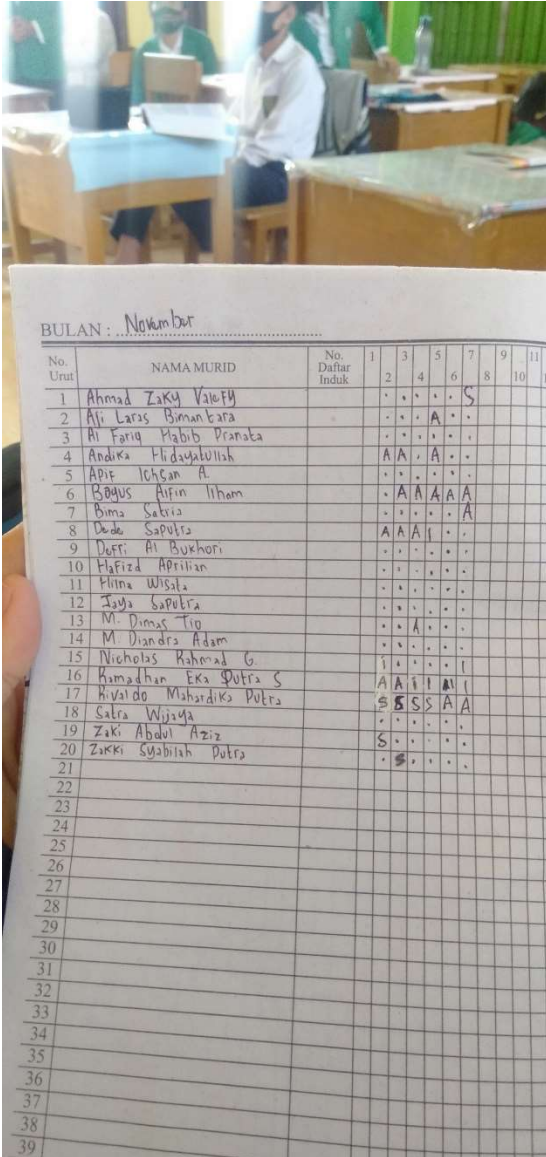 BULAN : November
No. Urut NAMA MURID No. Daftar Induk 1 2 3 4 5 6 7 8 9 10 11
1 Ahmad Zaky Valefy . . . . . S
2 Afi Laras Bimantara . . . A . .
3 Al Fariq Habib Pranata . . . . . .
4 Andika Hidayatullah A A . A . .
5 Apif Ichsan A. . . . . . .
6 Bagus Aifin Ilham . A A A A A
7 Bima Satria . . . . . A
8 Dede Saputra A A A I . .
9 Deffi Al Bukhori . . . . . .
10 Hafizd Aprilian . . . . . .
11 Hilna Wisata . . . . . .
12 Jaya Saputra . . . . . .
13 M. Dimas Tio . . A . . .
14 M. Diandra Adam . . . . . .
15 Nicholas Rahmad G. i . . . . I
16 Ramadhan Eka Putra S A A i I I
17 Rivaldo Mahardika Putra S S S S A A
18 Satra Wijaya . . . . . .
19 Zaki Abdul Aziz S . . . . .
20 Zakki Syabilah Putra . S . . . .
21
22
23
24
25
26
27
28
29
30
31
32
33
34
35
36
37
38
39